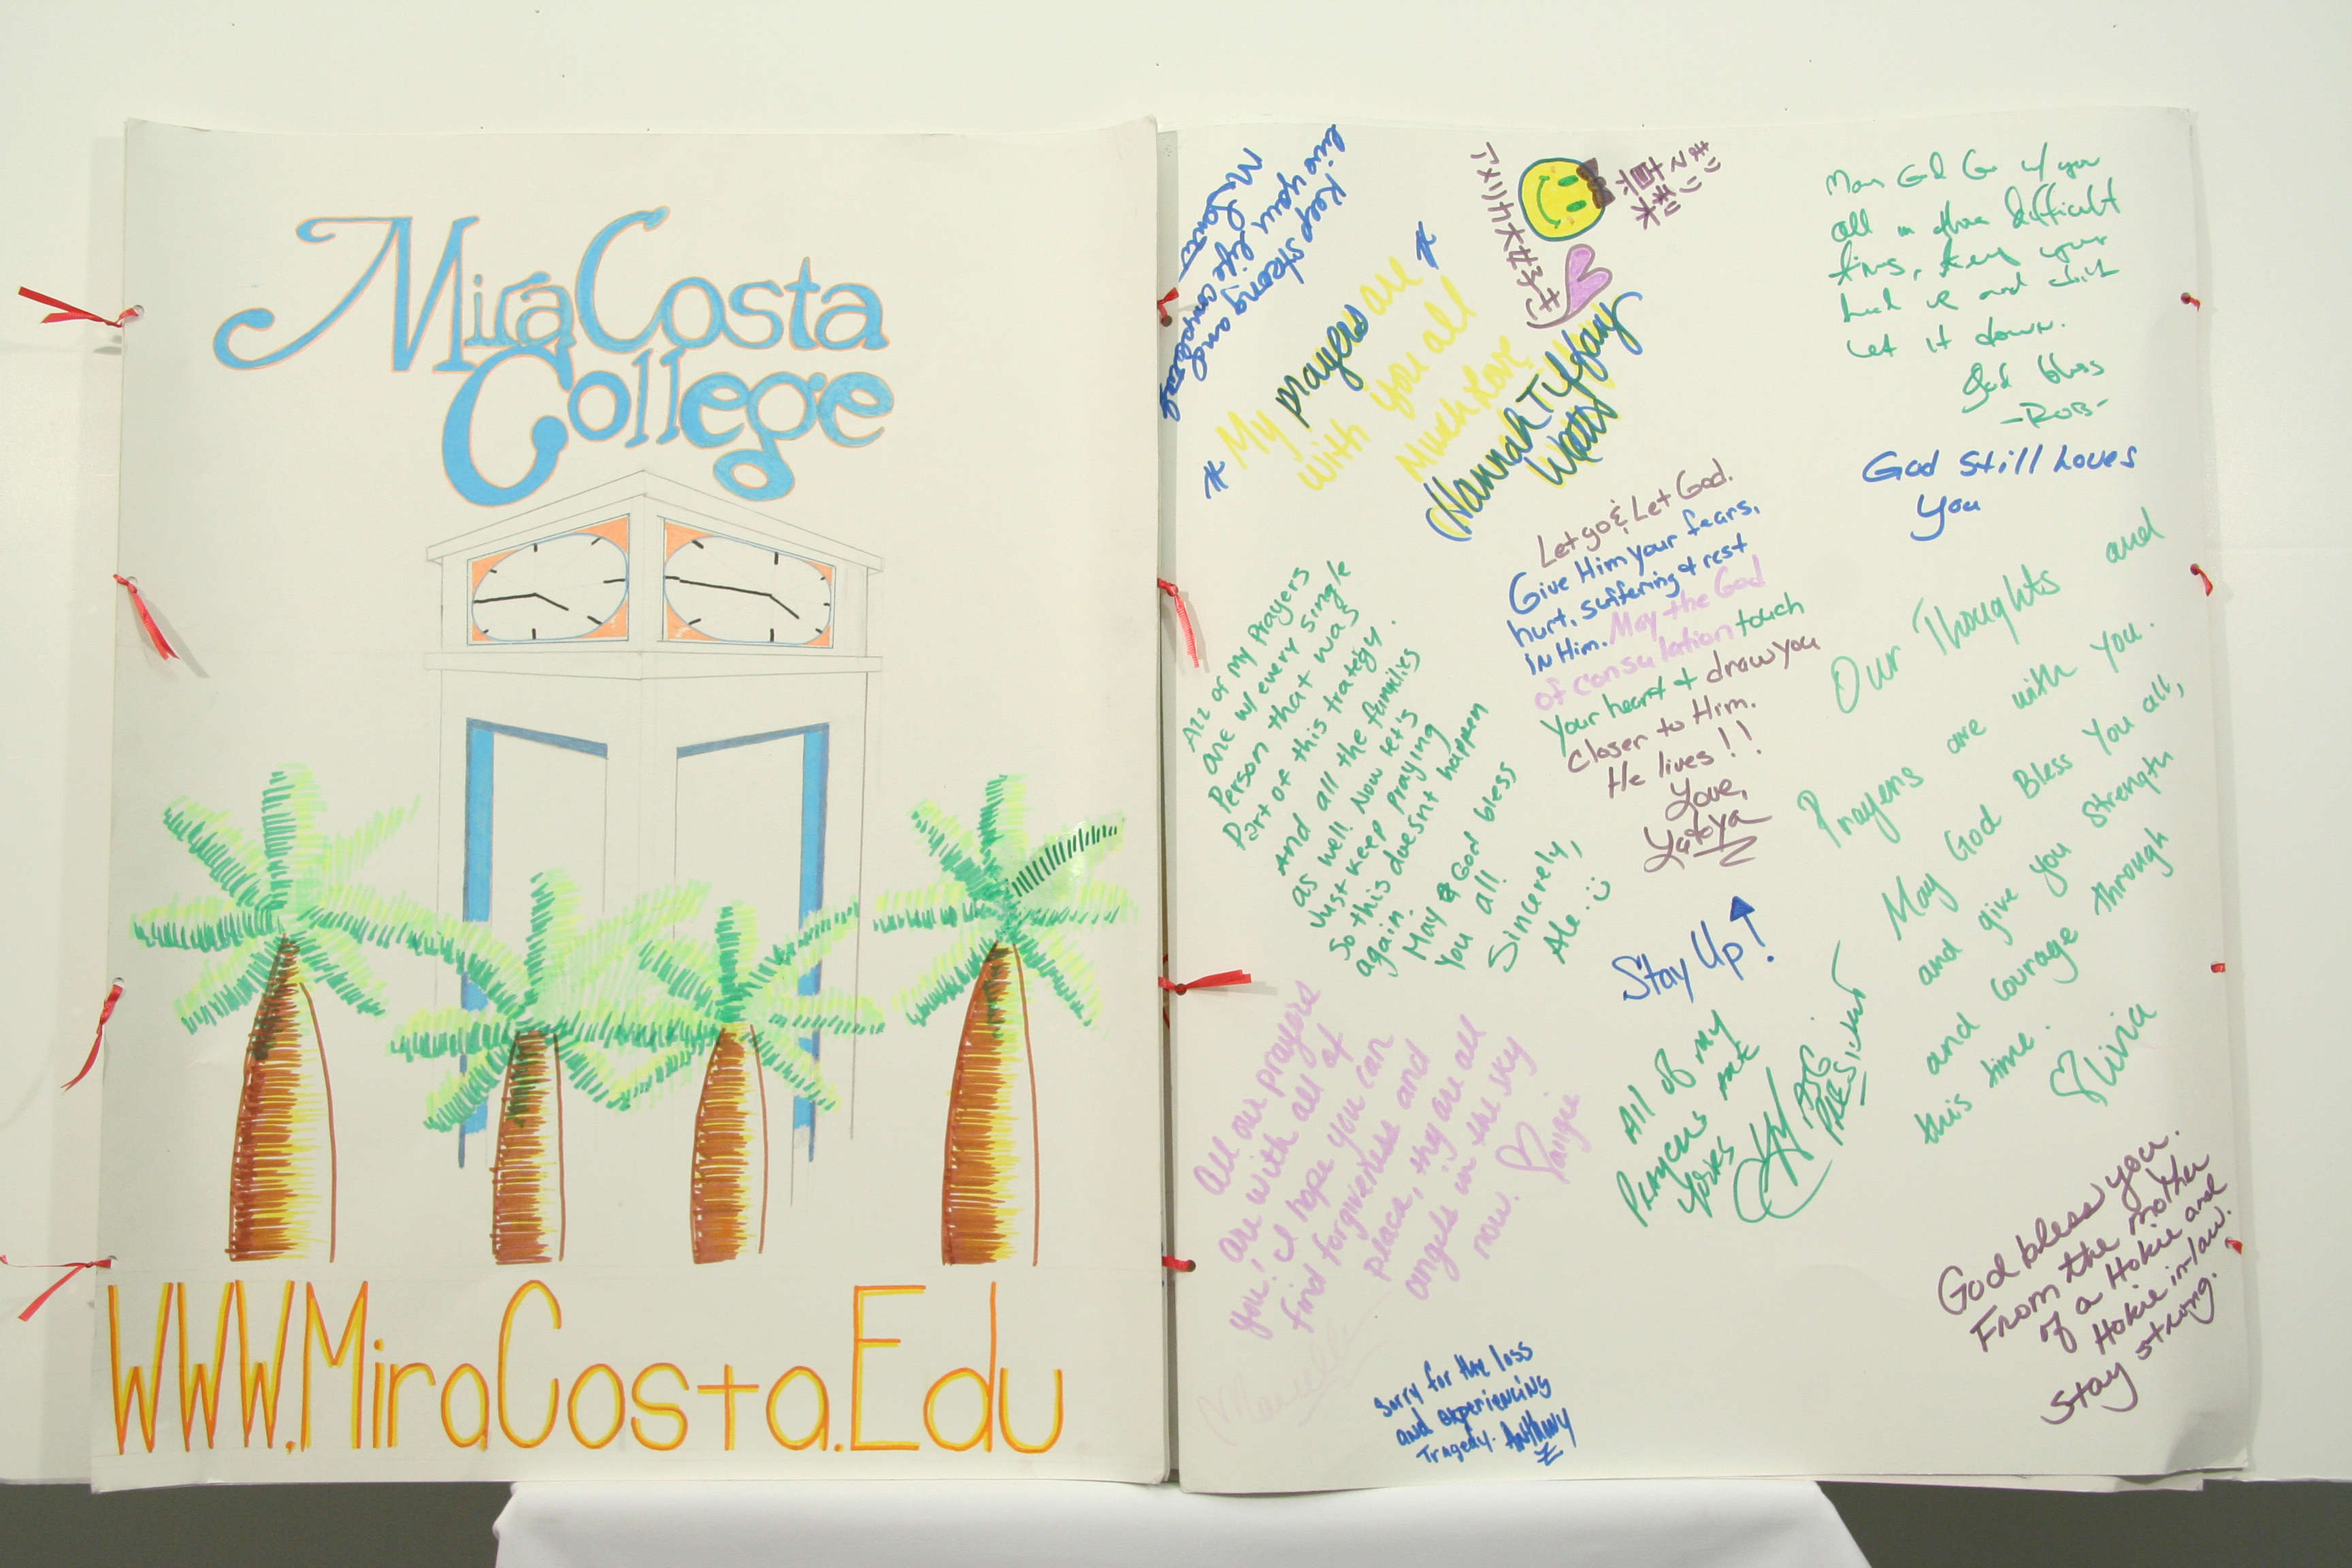 MiraCosta
College
WWW.MiraCosta.Edu
Keep strong and
live your life
My prayers are
with you all
Much Love
Hannah Tiffany
Watts
God Go w/ you
all in these difficult
times, keep your
let it down.
God bless
-ROB-
God Still Loves
You
Let go & Let God.
Give Him your fears,
hurt, suffering & rest
in Him. May the God
of consulation touch
your heart & draw you
closer to Him.
He lives!!
Love,
Latoya
All of my Prayers
are w/ every single
Person that was
Part of this trategy.
And all the families
as well. Now let's
Just keep praying
So this doesnt happen
again.
May God bless
you all!
Sincerely,
Ale :)
Our Thoughts and
Prayers are with You.
May God Bless You all,
and give you strength
and courage through
this time.
♡ Livia
Stay Up!
All of my
Prayers are
yours
ASG
PRESIDENT
All our prayers
are with all of
you, I hope you can
find forgiveness and
place, they are all
angels in the sky
now. ♡ Angie
♡ Marcella
Sorry for the loss
and experiencing
Tragedy. Anthony
God bless you.
From the mother
of a Hokie and
Hokie in-law.
Stay strong.